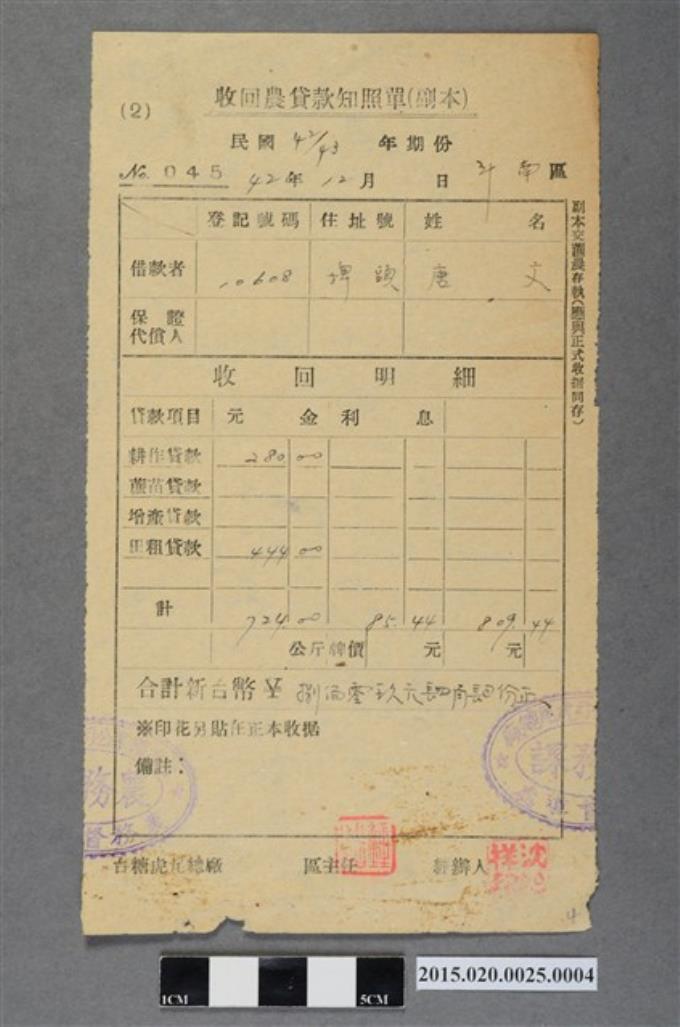 收回農貸款知照單(副本)
(2)
民國 42/43 年期份
No. 045 42年 12月 日 斗南區
登記號碼 住址號 姓 名
借款者 10608 埤頭 唐 文
保證代償人
收回明細
貸款項目 元金 利息
耕作貸款 280 00
蔗苗貸款
增產貸款
田租貸款 444 00
計 724.00 85.44 809.44
公斤牌價 元 元
合計新台幣¥ 捌佰零玖元肆角肆份正
※印花另貼在正本收据
備註:
副本交蔗農存執(應與正式收据同存)
農務
督
課
台糖虎尾總廠 區主任 經辦人
沈祥
4
1CM 5CM
2015.020.0025.0004